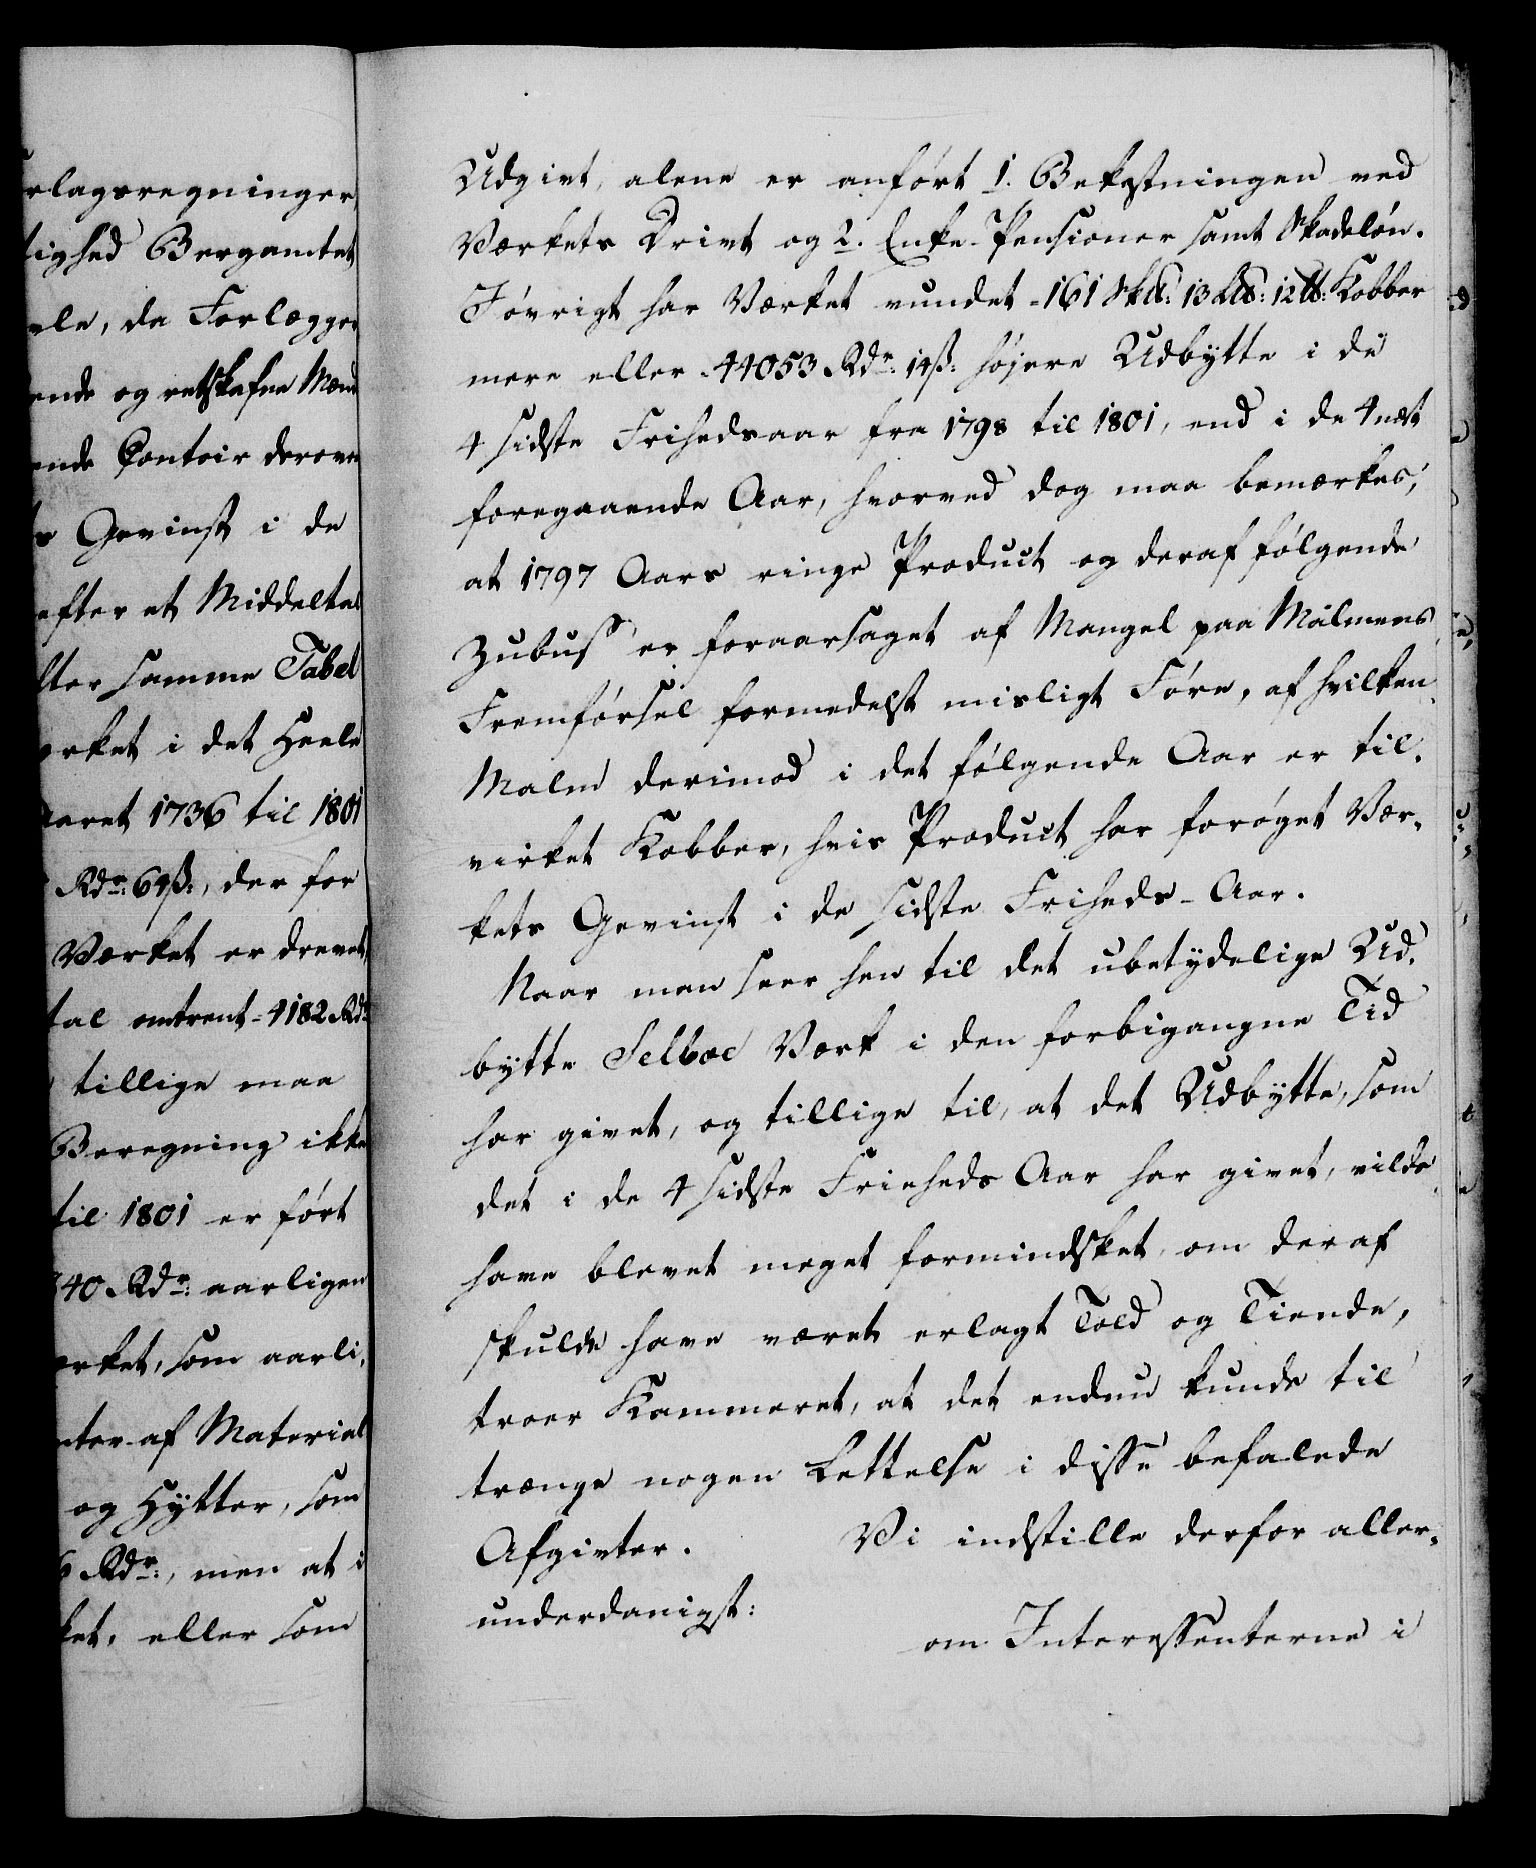 rlagsregninger,
tighed Bergamtet
ele, da Forlægge
ende og retskafne Mænd
ende Contoir derover
s Gevinst i de
efter et Middeltal
lter samme Tabel
ærket i det Heele
aaret 1736 til 1801
Rdr: 64ß:, der for
Værket er drevet,
tal omtrent 4182 Rdr
tillige maa
Beregning ikke
til 1801 er ført
340 Rdr: aarligen
ærket, som aarli,
nter af Material
og Hytter, som
6 Rdr:, men at i
ket, eller som
Udgivt, alene er anført 1. Bekostningen ved
Værkets Drivt og 2. Enke-Pensioner samt Skadeløn.
Iøvrigt har Værket vundet 161 Sk℔: 13 L℔: 12 ℔: Kobber
mere eller 44053 Rdr: 14ß: højere Udbytte i de
4 sidste Frihedsaar fra 1798 til 1801, end i de 4 næst
foregaaende Aar, hvorved dog maa bemærkes,
at 1797 Aars ringe Product og deraf følgende
Zubus er foraarsaget af Mangel paa Malmens
Fremførsel formedelst misligt Føre, af hvilken
Malm derimod i det følgende Aar er til,
virket Kobber, hvis Product har forøget Vær,
kets Gevinst i de sidste Friheds-Aar.
Naar man seer hen til det ubetydelige Ud,
bytte Selboe Værk i den forbigangne Tid
har givet, og tillige til, at det Udbytte, som
det i de 4 sidste Frieheds Aar har givet, vilde
have blevet meget formindsket, om deraf
skulde have været erlagt Told og Tiende,
troer Kammeret, at det endnu kunde til
trænge nogen Lettelse i disse befalede
Afgivter. Vi indstille derfor aller,
underdanigst:
om Interessenterne i